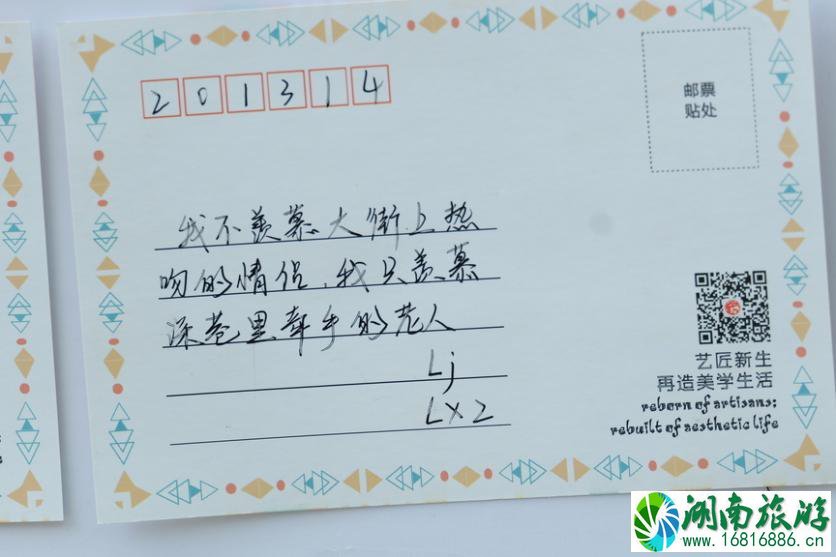 201314
邮票
贴处
我不羡慕大街上热
吻的情侣,我只羡慕
深巷里牵手的老人
Lj
LXZ
艺匠新生
再造美学生活
reborn of artisans:
rebuilt of aesthetic life
湖南旅游
www.16816886.cn